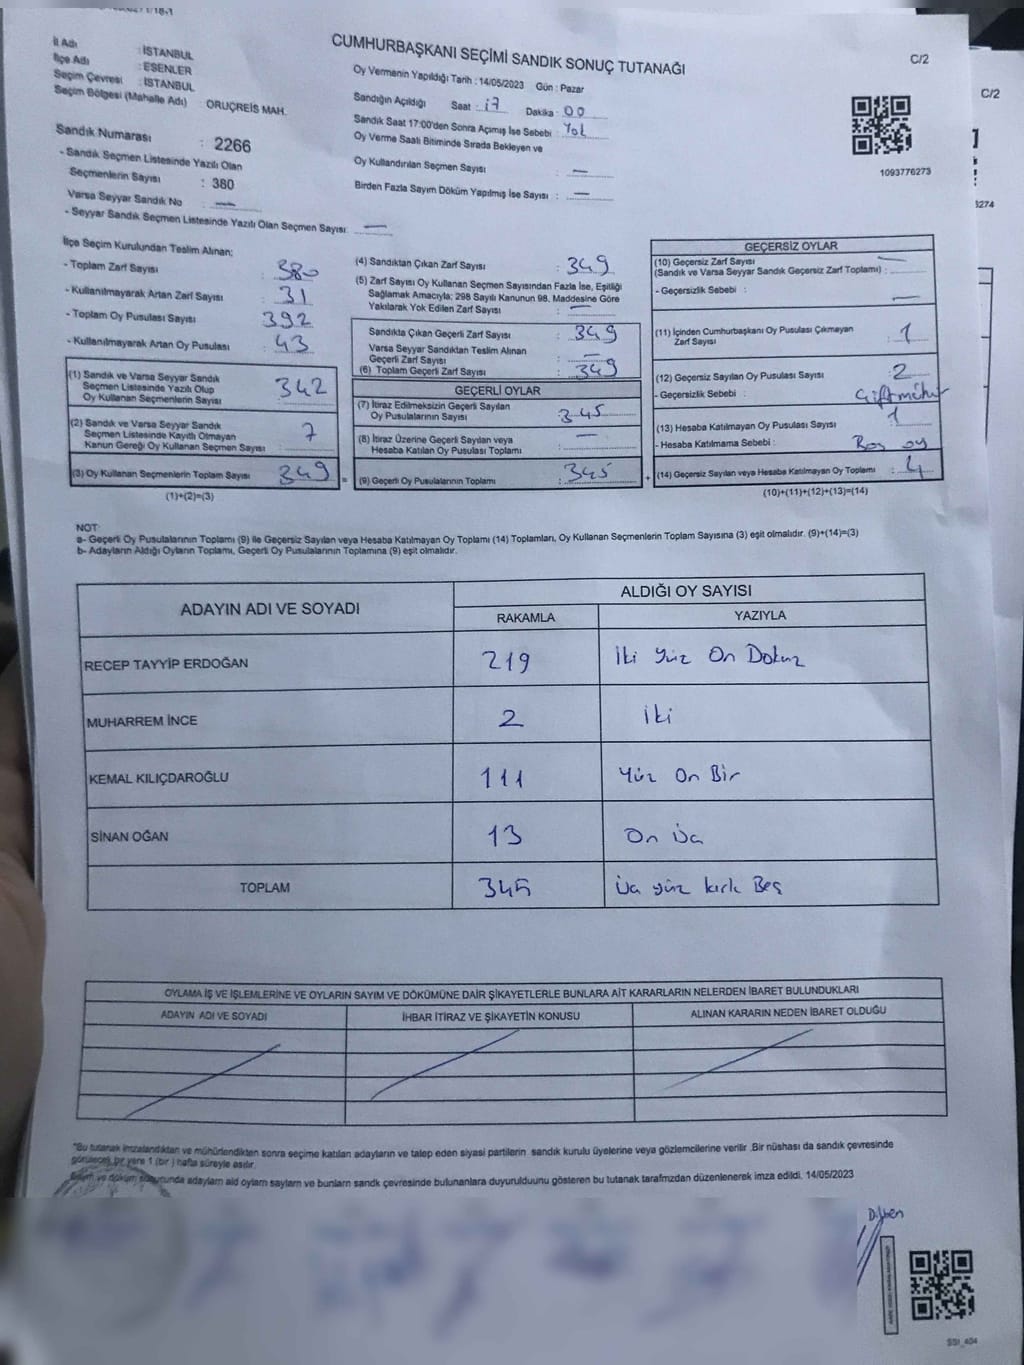 C/2
CUMHURBAŞKANI SEÇİMİ SANDIK SONUÇ TUTANAĞI
İl Adı : İSTANBUL
İlçe Adı : ESENLER
Seçim Çevresi : İSTANBUL
Seçim Bölgesi (Mahalle Adı) : ORUÇREİS MAH.
Sandık Numarası : 2266
- Sandık Seçmen Listesinde Yazılı Olan
Seçmenlerin Sayısı : 380
Varsa Seyyar Sandık No —
- Seyyar Sandık Seçmen Listesinde Yazılı Olan Seçmen Sayısı: —
Oy Vermenin Yapıldığı Tarih : 14/05/2023 Gün : Pazar
Sandığın Açıldığı Saat : 17 Dakika : 00
Sandık Saat 17:00'den Sonra Açımış İse Sebebi : Yok
Oy Verme Saati Bitiminde Sırada Bekleyen ve
Oy Kullandırılan Seçmen Sayısı : —
Birden Fazla Sayım Döküm Yapılmış İse Sayısı : —
1093776273
C/2
3274
İlçe Seçim Kurulundan Teslim Alınan:
- Toplam Zarf Sayısı : 380
- Kullanılmayarak Artan Zarf Sayısı : 31
- Toplam Oy Pusulası Sayısı : 392
- Kullanılmayarak Artan Oy Pusulası : 43
(1) Sandık ve Varsa Seyyar Sandık
Seçmen Listesinde Yazılı Olup
Oy Kullanan Seçmenlerin Sayısı : 342
(2) Sandık ve Varsa Seyyar Sandık
Seçmen Listesinde Kayıtlı Olmayan
Kanun Gereği Oy Kullanan Seçmen Sayısı : 7
(3) Oy Kullanan Seçmenlerin Toplam Sayısı : 349 =
(1)+(2)=(3)
(4) Sandıktan Çıkan Zarf Sayısı : 349
(5) Zarf Sayısı Oy Kullanan Seçmen Sayısından Fazla İse, Eşitliği
Sağlamak Amacıyla; 298 Sayılı Kanunun 98. Maddesine Göre
Yakılarak Yok Edilen Zarf Sayısı : —
Sandıkta Çıkan Geçerli Zarf Sayısı : 349
Varsa Seyyar Sandıktan Teslim Alınan
Geçerli Zarf Sayısı : —
(6) Toplam Geçerli Zarf Sayısı : 349
GEÇERLİ OYLAR
(7) İtiraz Edilmeksizin Geçerli Sayılan
Oy Pusulalarının Sayısı : 345
(8) İtiraz Üzerine Geçerli Sayılan veya
Hesaba Katılan Oy Pusulası Toplamı : —
(9) Geçerli Oy Pusulalarının Toplamı : 345 +
GEÇERSİZ OYLAR
(10) Geçersiz Zarf Sayısı —
(Sandık ve Varsa Seyyar Sandık Geçersiz Zarf Toplamı) :
- Geçersizlik Sebebi : —
(11) İçinden Cumhurbaşkanı Oy Pusulası Çıkmayan
Zarf Sayısı : 1
(12) Geçersiz Sayılan Oy Pusulası Sayısı : 2
- Geçersizlik Sebebi : Çift mühür
(13) Hesaba Katılmayan Oy Pusulası Sayısı : 1
- Hesaba Katılmama Sebebi : Boş oy
(14) Geçersiz Sayılan veya Hesaba Katılmayan Oy Toplamı : 4
(10)+(11)+(12)+(13)=(14)
NOT:
a- Geçerli Oy Pusulalarının Toplamı (9) ile Geçersiz Sayılan veya Hesaba Katılmayan Oy Toplamı (14) Toplamları, Oy Kullanan Seçmenlerin Toplam Sayısına (3) eşit olmalıdır. (9)+(14)=(3)
b- Adayların Aldığı Oyların Toplamı, Geçerli Oy Pusulalarının Toplamına (9) eşit olmalıdır.
ADAYIN ADI VE SOYADI ALDIĞI OY SAYISI
RAKAMLA YAZIYLA
RECEP TAYYİP ERDOĞAN 219 İki Yüz On Dokuz
MUHARREM İNCE 2 İki
KEMAL KILIÇDAROĞLU 111 Yüz On Bir
SİNAN OĞAN 13 On Üç
TOPLAM 345 Üç yüz kırk Beş
OYLAMA İŞ VE İŞLEMLERİNE VE OYLARIN SAYIM VE DÖKÜMÜNE DAİR ŞİKAYETLERLE BUNLARA AİT KARARLARIN NELERDEN İBARET BULUNDUKLARI
ADAYIN ADI VE SOYADI İHBAR İTİRAZ VE ŞİKAYETİN KONUSU ALINAN KARARIN NEDEN İBARET OLDUĞU
"Bu tutanak imzalandıktan ve mühürlendikten sonra seçime katılan adayların ve talep eden siyasi partilerin sandık kurulu üyelerine veya gözlemcilerine verilir .Bir nüshası da sandık çevresinde
görülecek bir yere 1 (bir ) hafta süreyle asılır.
ve döküm sonucunda adayların ald oyların sayların ve bunların sandk çevresinde bulunanlara duyurulduunu gösteren bu tutanak tarafmzdan düzenlenerek imza edildi. 14/05/2023
Dilben
SSİ_404